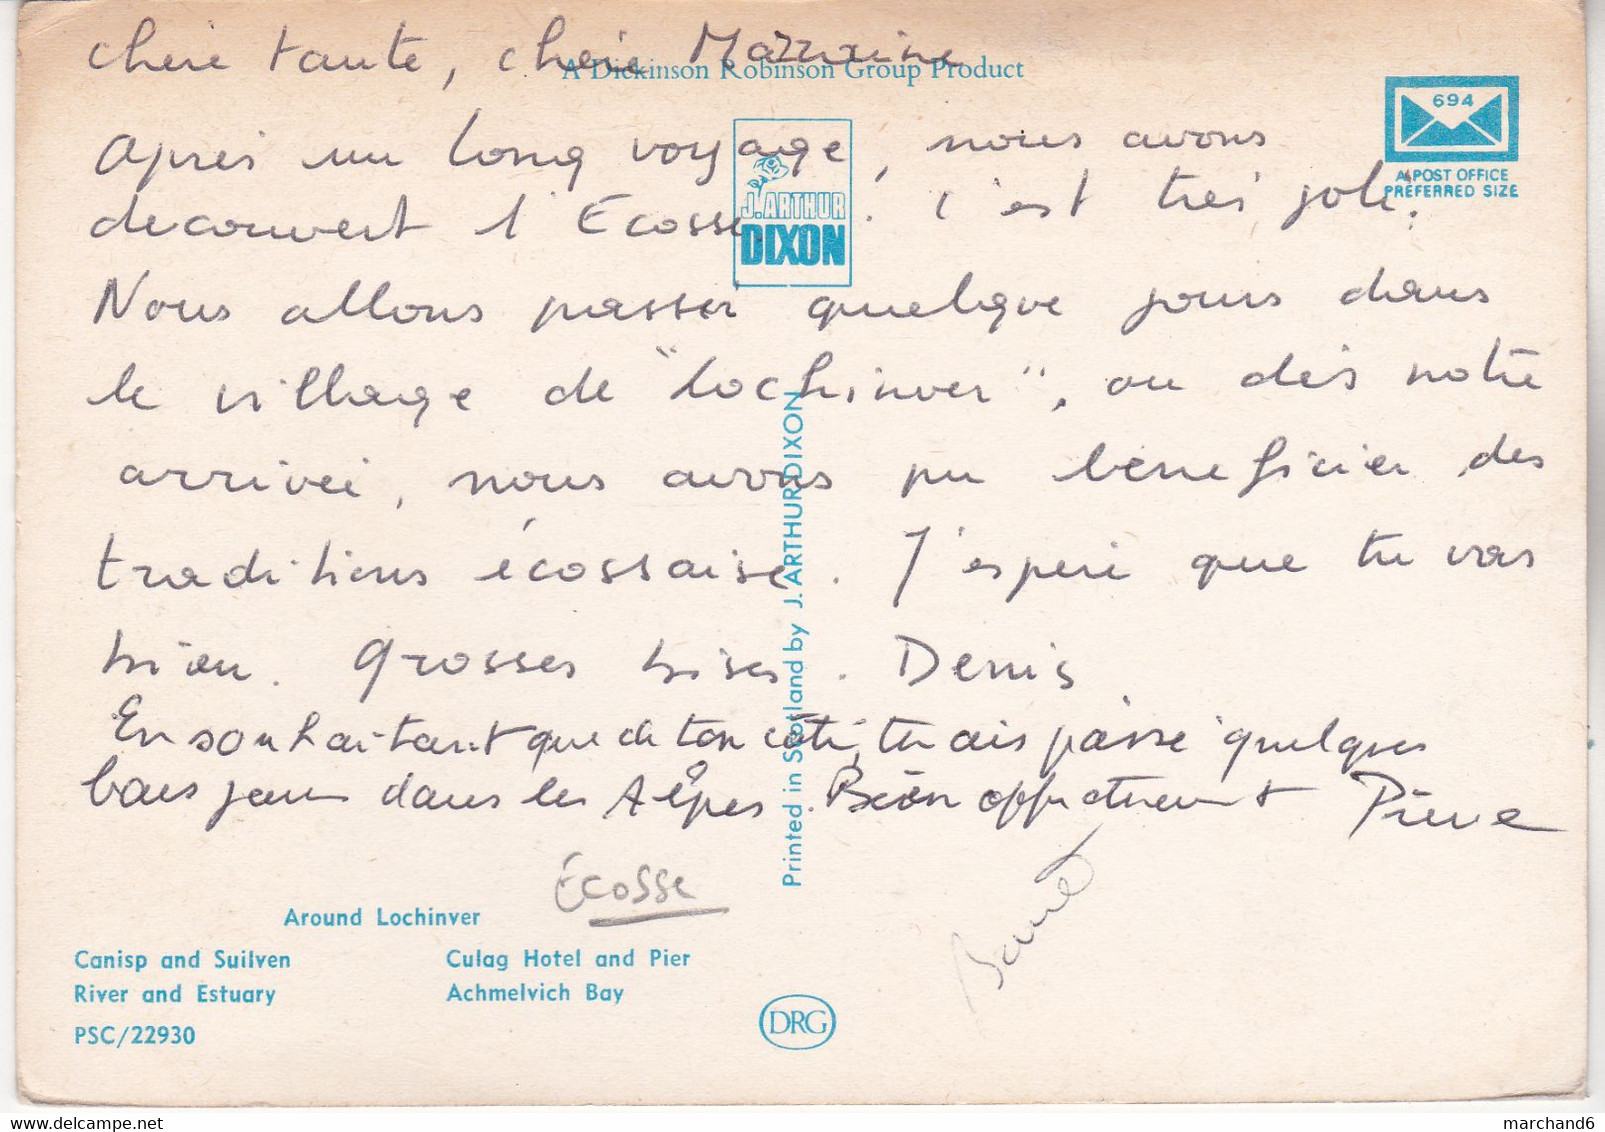 chère tante, chère Marraine
A Dickinson Robinson Group Product
694
A POST OFFICE
PREFERRED SIZE
Après un long voyage, nous avons
decouvert l'Ecosse. C'est très joli.
J. ARTHUR
DIXON
Nous allons passer quelque jours dans
le village de "Lochinver", ou dès notre
arrivée, nous avons pu bénéficier des
traditions écossaise. J'espère que tu vas
bien. Grosses bises. Denis
En souhaitant que de ton côté, tu ais passé quelques
bons jours dans les Alpes. Bien affectueusement Pierre
Printed in Scotland by J. ARTHUR DIXON
Écosse
Around Lochinver
Canisp and Suilven
Culag Hotel and Pier
River and Estuary
Achmelvich Bay
PSC/22930
DRG
marchand6
www.delcampe.net